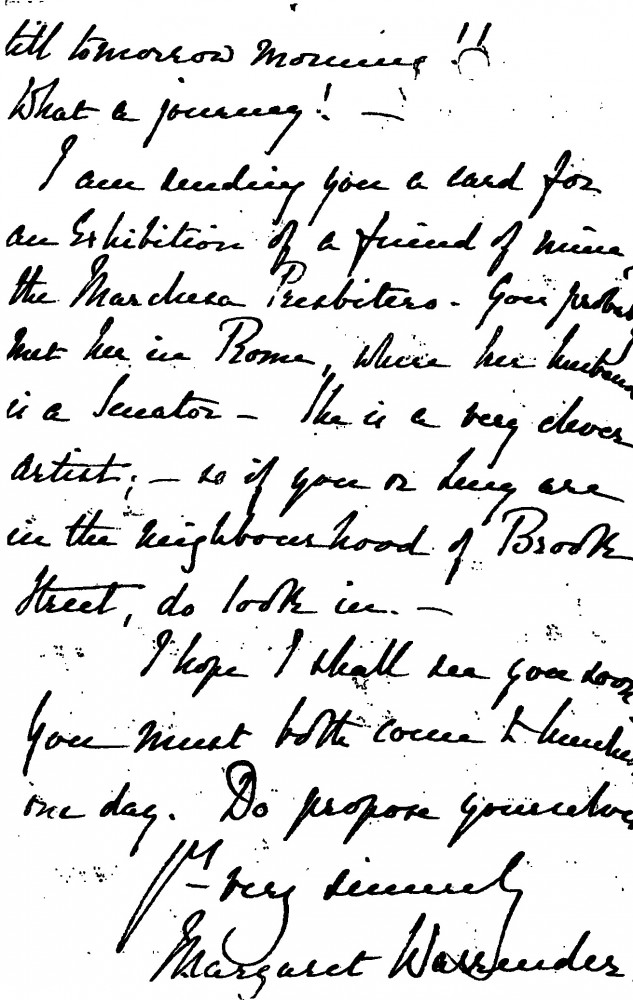 till tomorrow morning!!
What a journey! —
I am sending you a card for
an Exhibition of a friend of mine,
the Marchesa Presbitero - You probab
met her in Rome, where her husband
is a Senator - She is a very clever
artist; - so if you or are
in the neighbourhood of Brook
Street, do look in. —
I hope I shall see you soon
You must both come to
one day. Do propose yourselves
Yrs very sincerely
Margaret Warrender